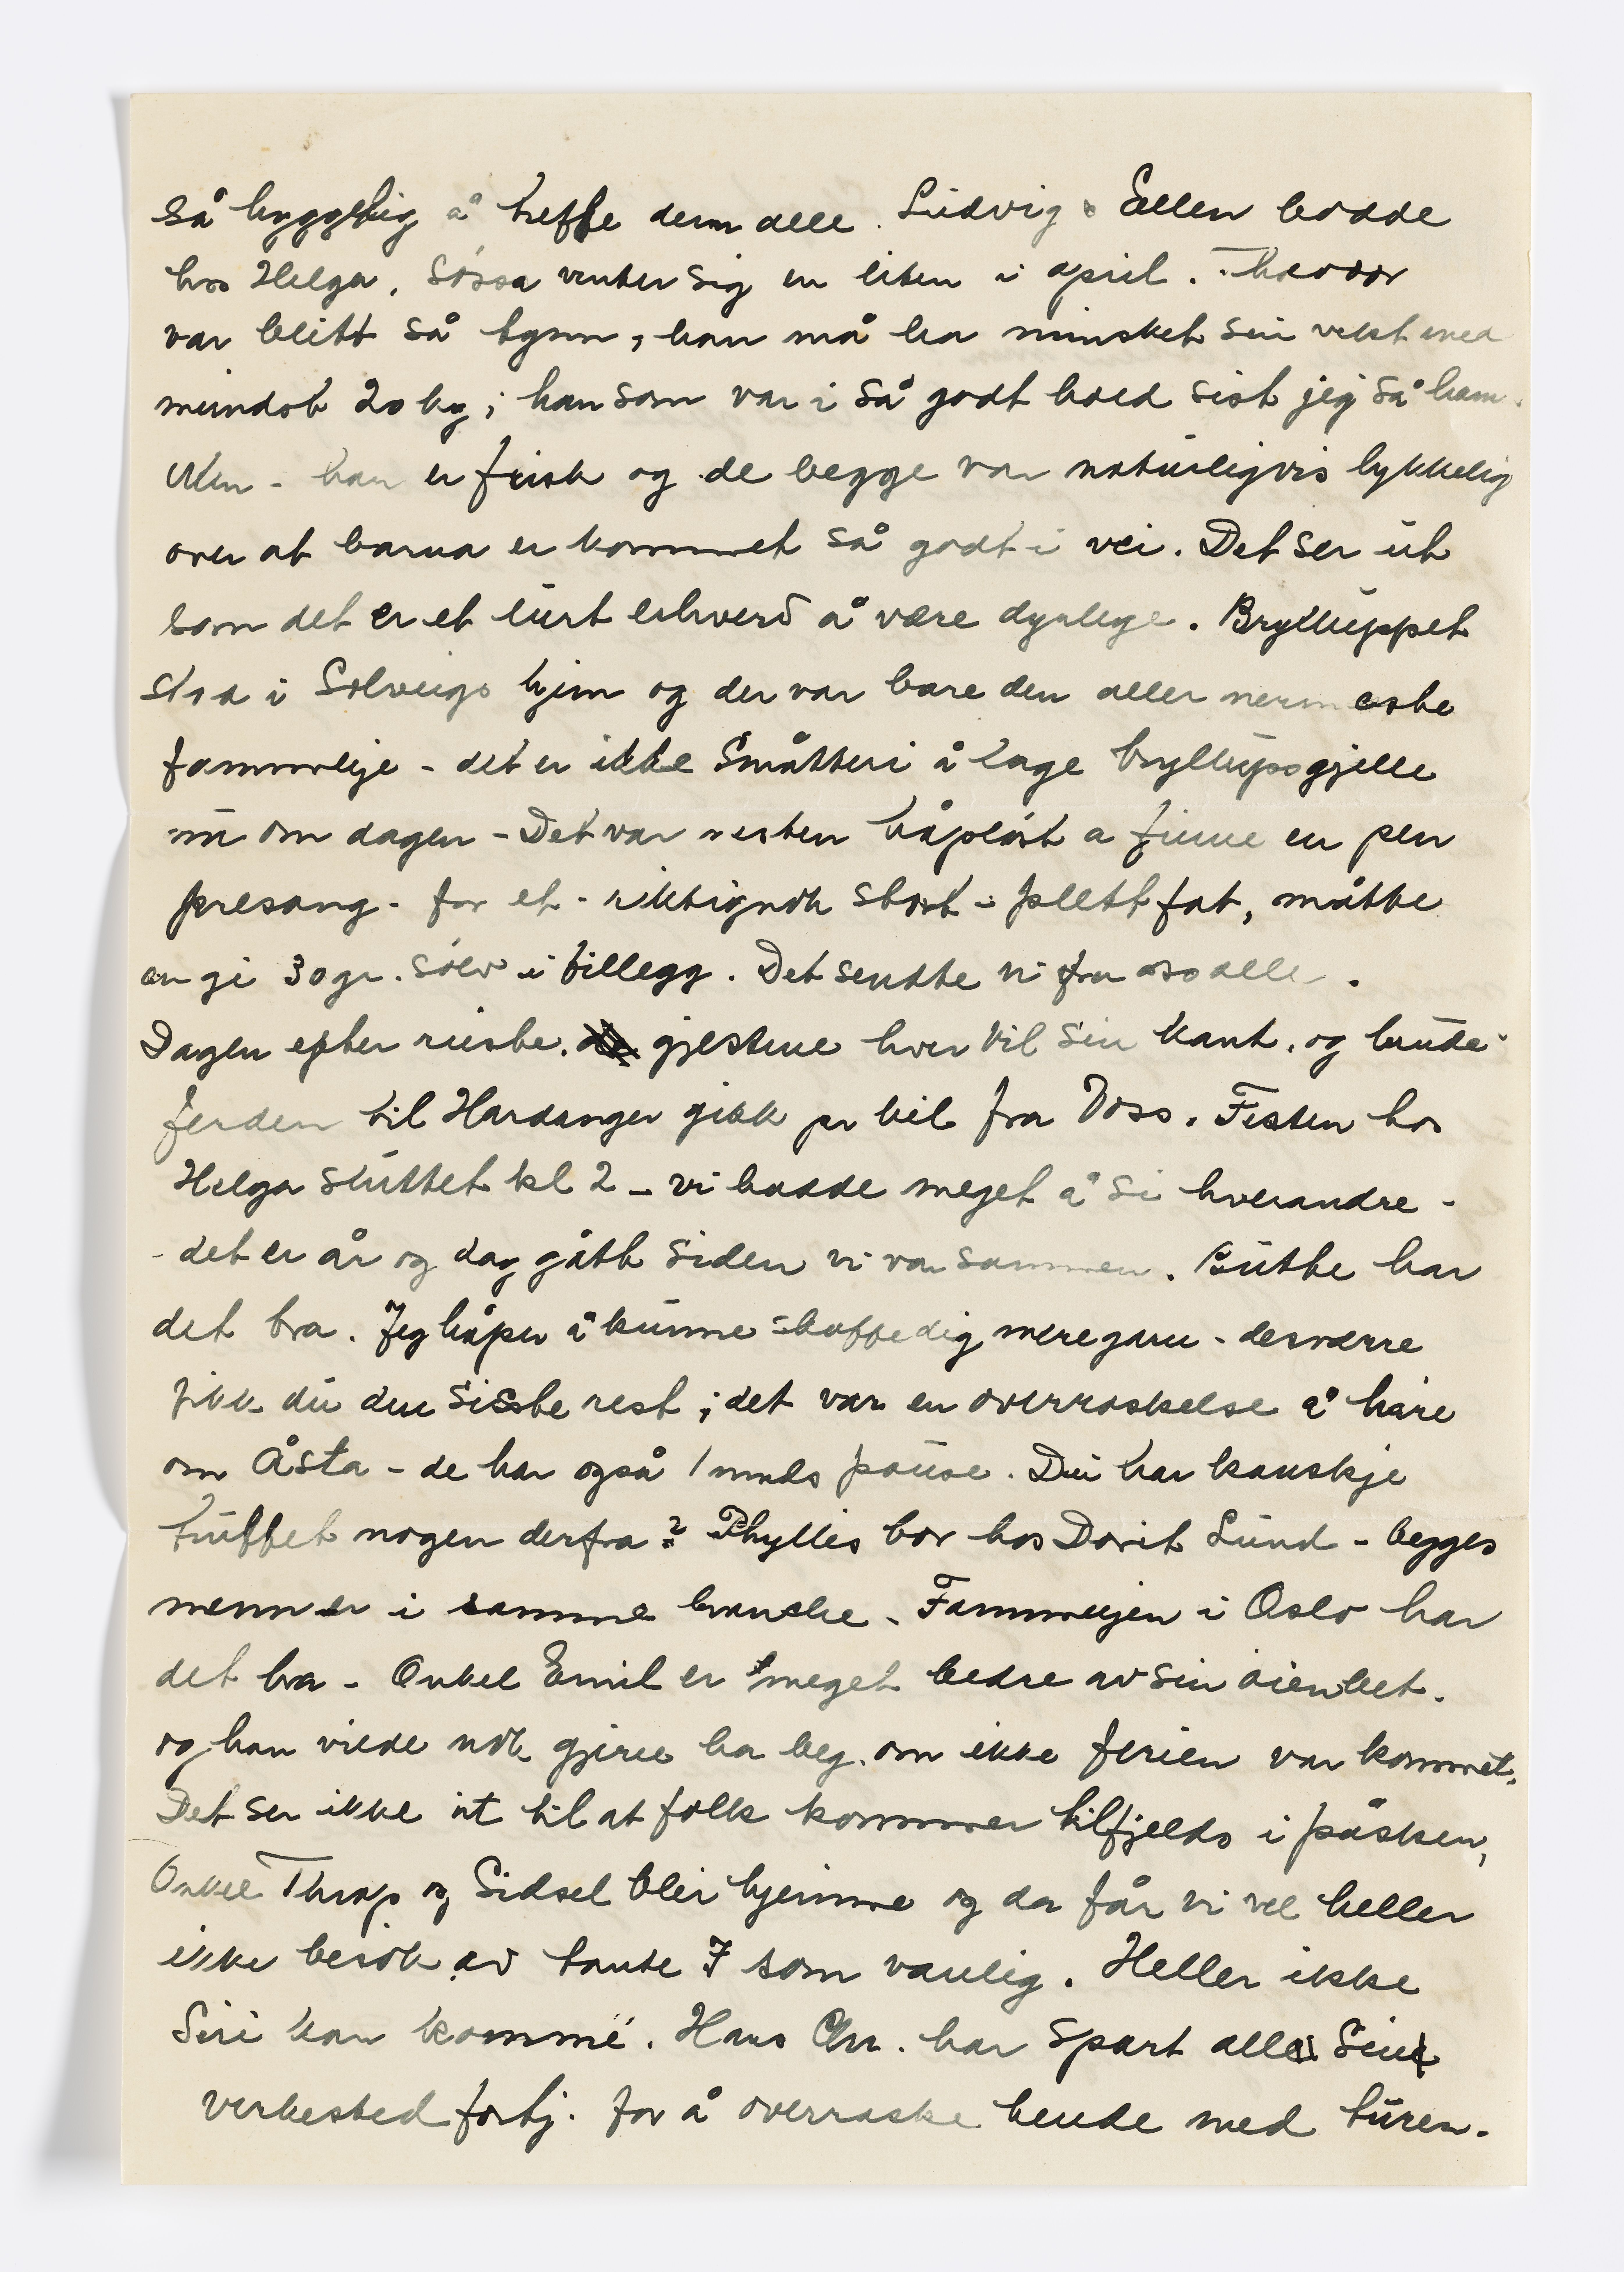 så hyggelig å treffe dem alle. Ludvig & Ellen bodde
hos Helga, Sossa venter sig en liten i april. Theodor
var blitt så tynn, han må ha minsket sin vekt med
mindst 20 kg; han som var i så godt hold sist jeg så ham.
Men - han er frisk og de begge var naturligvis lykkelig
over at barna er kommet så godt i vei. Det ser ut
som det er et lurt erhverv å være dyrlege. Bryllúppet
stod i Solveigs hjem og der var bare den aller nermeste
fammelije - det er ikke småtteri å lage bryllupsgjille
nu om dagen - Det var nesten håpløst a finne en pen
presang - for et - riktignok stort - plettfat, måtte
en gi 30 gr. sølv i tillegg. Det sendte vi fra oss alle.
Dagen efter reiste gjestene hver til sin kant, og brude-
ferden til Hardanger gikk pr bil fra Voss. Festen hos
Helga sluttet kl 2 - vi hadde meget å si hverandre -
- det er år og dag gått siden vi var sammen. Butte har
det bra. Jeg håper å kunne skaffe dig mere garn - desværre
fikk du den siste rest; det var en overraskelse å høre
om Åsta - de har også 1 mnds pause. Du har kanskje
truffet nogen derfra? Phyllis bor hos Dorit Lund - begges
menn er i samme branche. Fammelijen i Oslo har
det bra - Onkel Emil er meget bedre av sin øienbet.
og han vilde nok gjerne ha beg. om ikke ferien var kommet.
Det ser ikke ut til at folk kommer tilfjelds i påsken,
Onkel Thrap og Sidsel blir hjemme og da får vi vel heller
ikke besøk av tante J som vanlig. Heller ikke
Siri kan komme. Hans Chr. har spart alle sin
verkested fortj. for å overraske hende med turen.